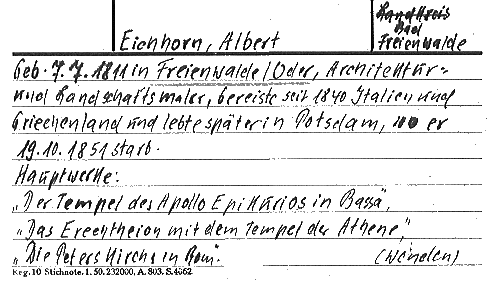 Landkreis
Bad
Freienwalde
Eichhorn, Albert
Geb. 7.7.1811 in Freienwalde/Oder, Architektur-
und Landschaftsmaler, bereiste seit 1840 Italien und
Griechenland und lebte später in Potsdam, wo er
19.10.1851 starb.
Hauptwerke:
„Der Tempel des Apollo Epikurios in Bassä",
„Das Erechtheion mit dem Tempel der Athene",
„Die Peters Kirche in Rom".
(wenden)
Reg. 10 Stichnote. 1. 50. 232000, A. 803. S. 4662